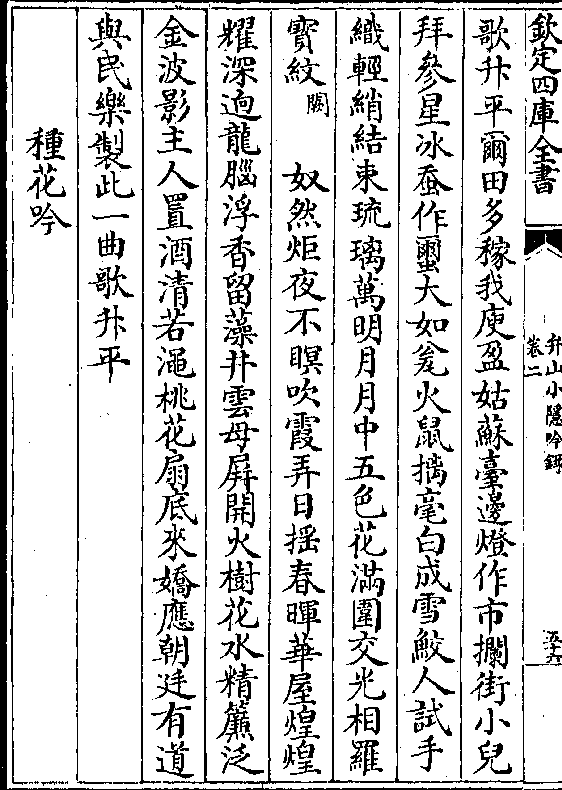 欽定四庫全書
弁山小隱吟録
卷二
五十六
歌升平爾田多稼我庾盈姑蘇臺邊燈作市攔街小兒
拜參星冰蚕作蠒大如瓮火鼠擒毫白成雪鮫人試手
織輕綃結束琉璃萬明月月中五色花滿圍交光相羅
寳紋闕奴然炬夜不瞑吹霞弄日揺春暉華屋煌煌
耀深逈龍腦浮香留藻井雲母屏開火樹花水精簾泛
金波影主人置酒清若澠桃花扇底來嬌應朝廷有道
與民樂製此一曲歌升平
種花吟